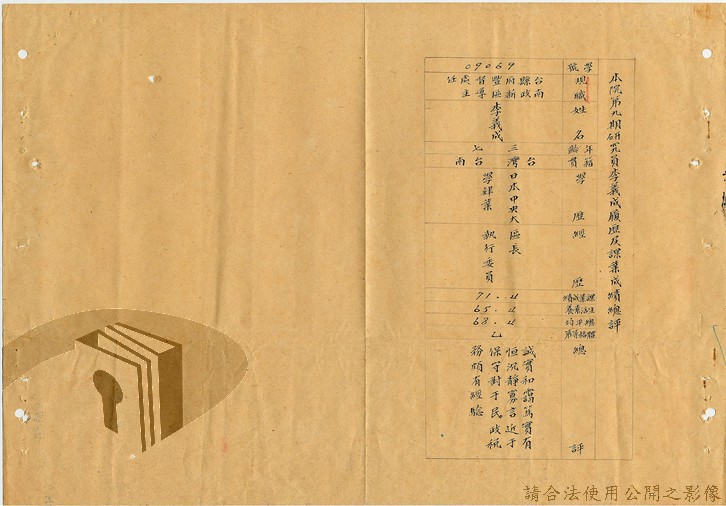 本院第九期研究員李義成履歷及課業成績總評
學號 09069
現職 台南縣政府新豐區督導處主任
姓名 李義成
年齡 三七
籍貫 台灣台南
學歷 日本中央大學肄業
經歷 區長
執行委員
課業成績 71.4
生活考核 65.4
總平均 68.4
等第 乙
總評 誠實和靄篤實有
恒沉靜寡言近于
保守對于民政税
務頗有經驗
請合法使用公開之影像